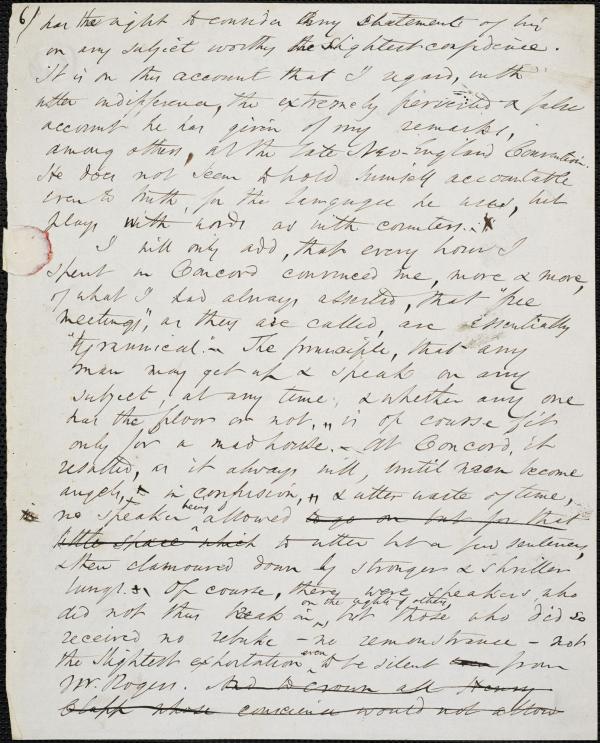 6/
has the right to consider any statements of his
on any subject worthy the slightest confidence.
It is on this account that I regard, with
utter indifference, the extremely perverted & false
account he has given of my remarks,
among others, at the late New-England Convention.
He does not seem to hold himself accountable
even to truth, for the language he uses, but
plays with words as with counters.
I will only add, that every hour I
spent in Concord convinced me, more & more,
of what I had always asserted, that "free
meetings", as they are called, are essentially
"tyrannical." – The principle, that any
man may get up & speak on any
subject, at any time, & whether any one
has the floor or not, is of course fit
only for a madhouse. – At Concord, it
resulted, as it always will, until men become
angels, in confusion, & utter waste of time,
no speaker being allowed to go on but for that
little space which to utter but a few sentences,
& then clamoured down by stronger & shriller
lungs. Of course, there were speakers who
did not thus break in on the rights of others, but those who did so
received no rebuke – no remonstrance – not
the slightest exhortation even to be silent from
Mr. Rogers. And to crown all Henry
Clapp whose conscience would not allow